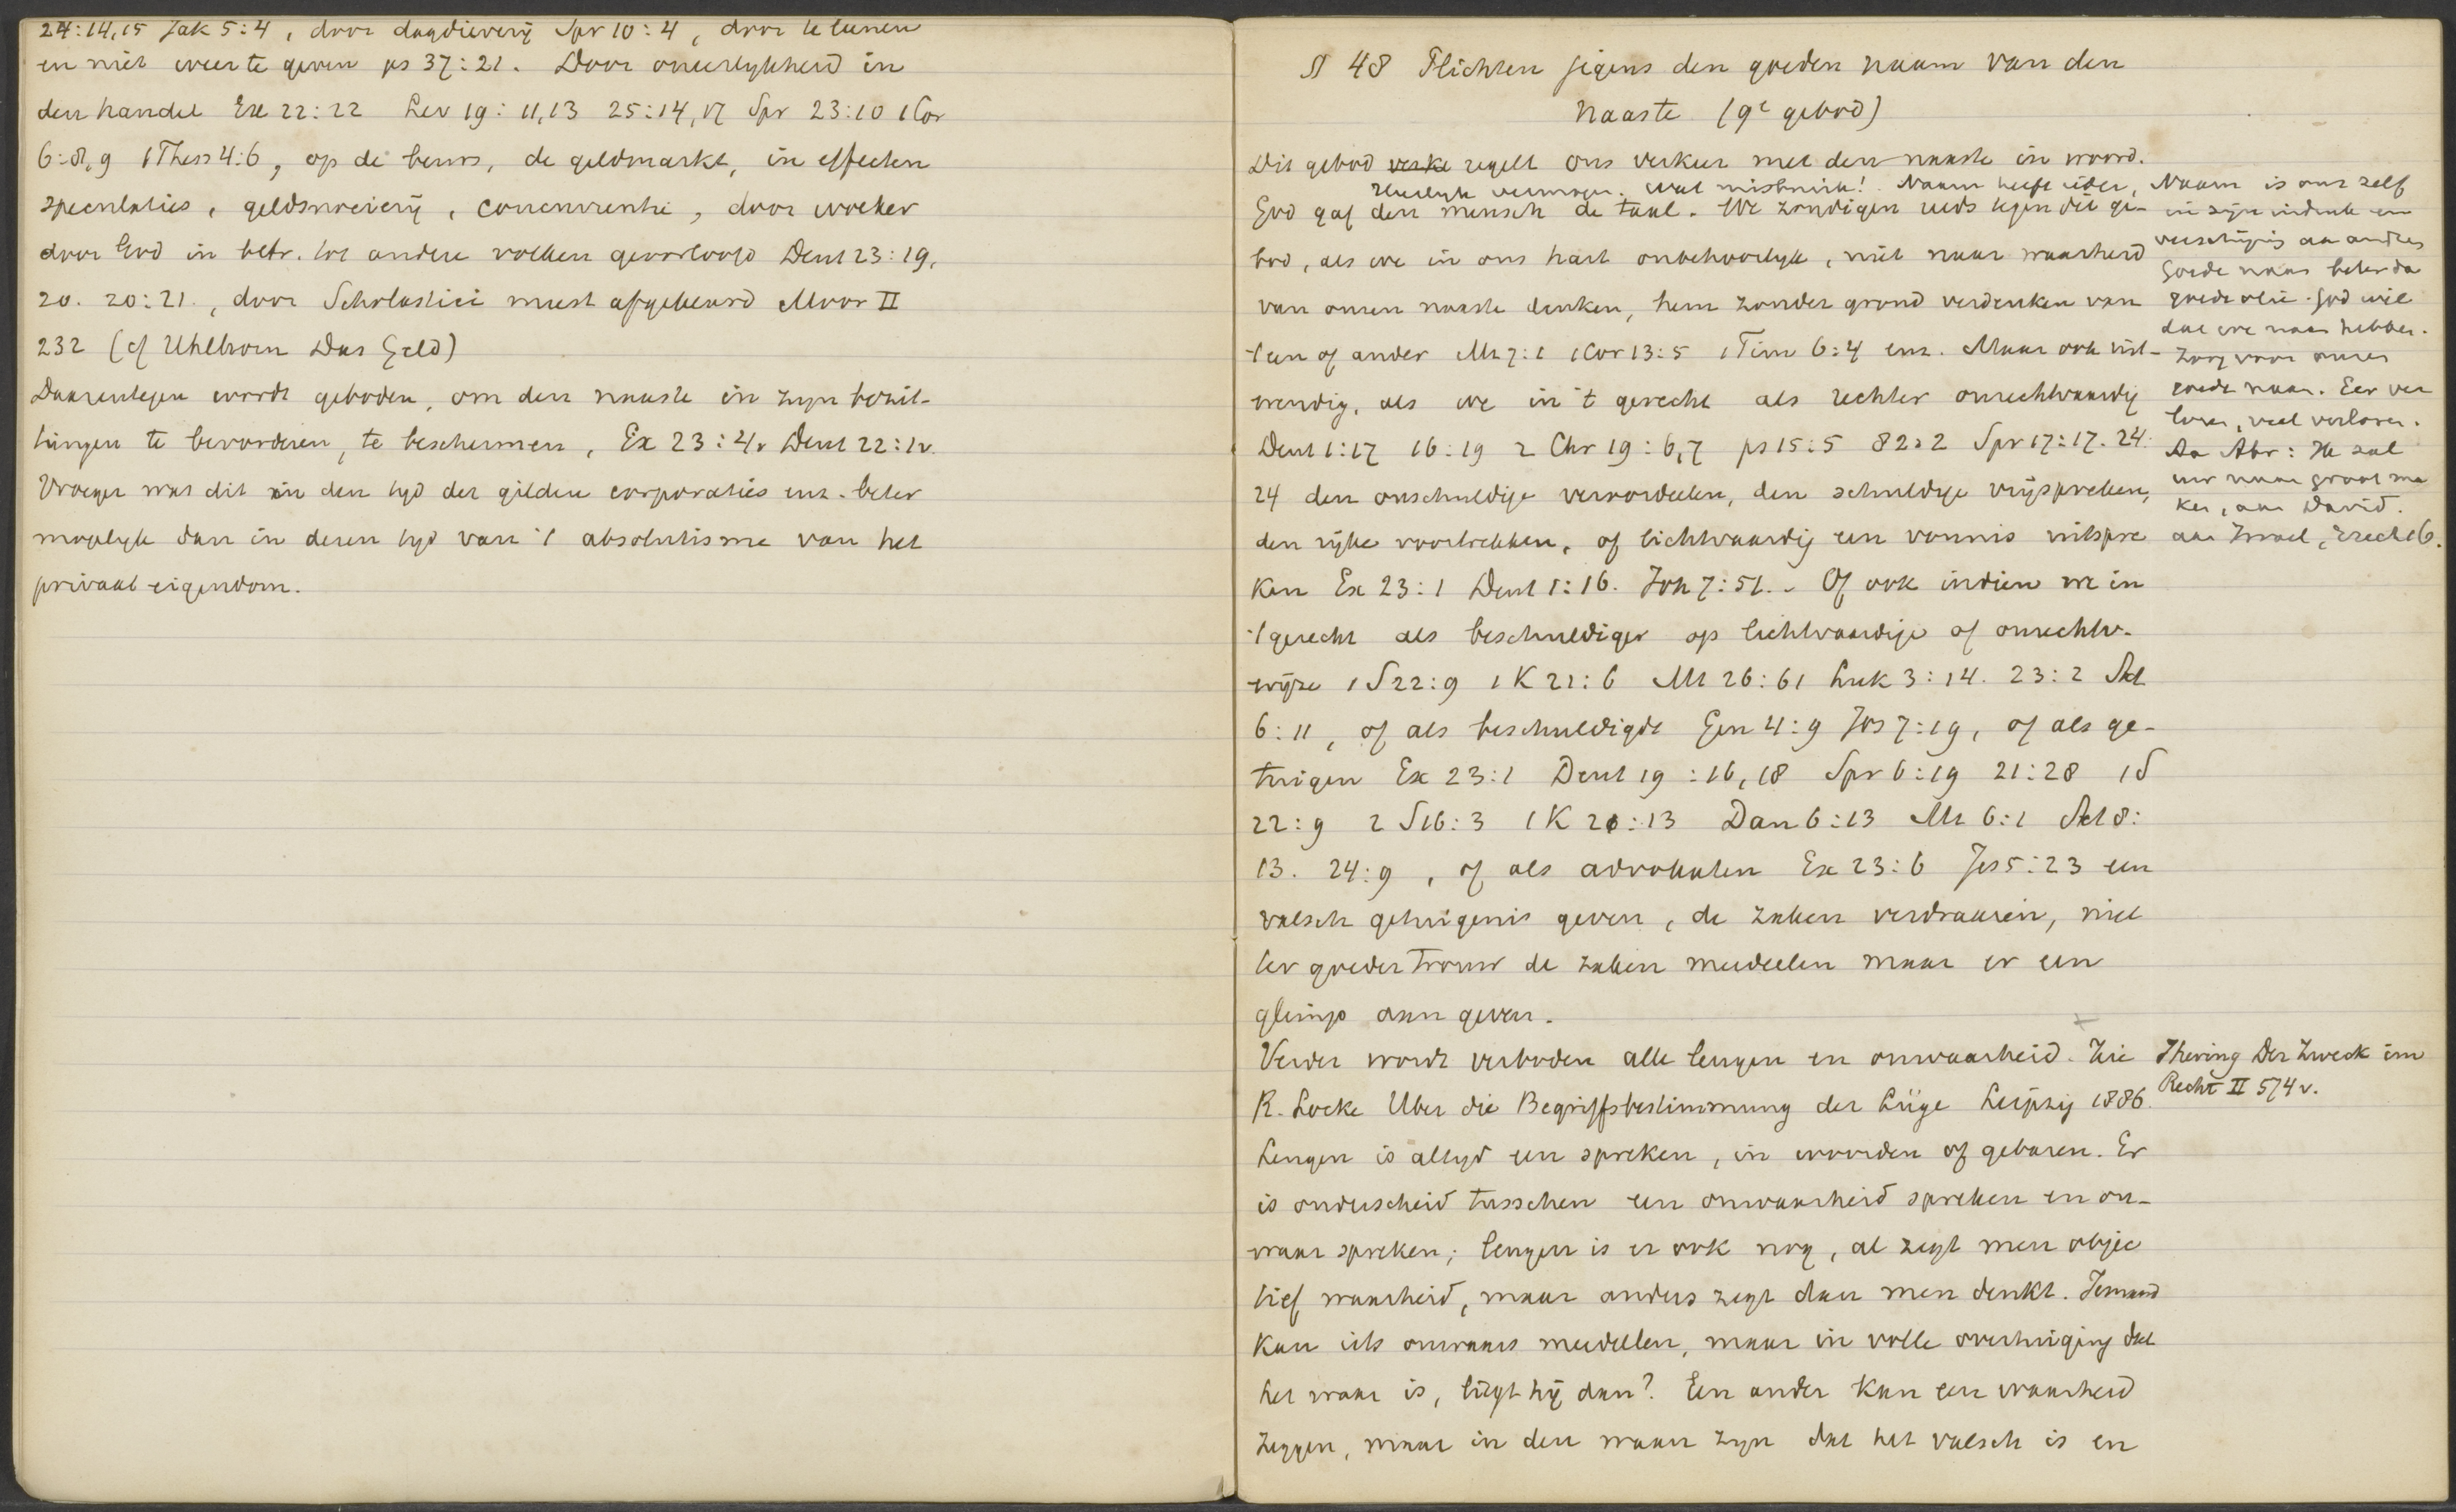 24:14,15 Jak 5:4, door dagdievery Spr 10:4, door te leenen
en niet weer te geven ps 37:21. Door oneerlykheid in
den handel Ex 22:22 Lev 19:11,13 25:14,17 Spr 23:10 1Cor
6:8,9 1Thess 4:6, op de beurs, de geldmarkt, in effecten
speculaties, geldsnoeiery, concurrentie, door woeker
door God in betr. tot andere volken geoorloofd Deut 23:19,
20. 20:21., door Scholastici meest afgekeurd Moor II
232 (cf Uhlhorn Das Geld)
Daarentegen wordt geboden, om den naaste in zyn bezit-
tingen te bevorderen, te beschermen, Ex 23:4v Deut 22:1v.
Vroeger was dit in den tyd der gilden corporaties enz. beter
mogelyk dan in dezen tyd van 't absolutisme van het
privaat eigendom.
§ 48 Plichten jegens den goeden naam van den
naaste (9e gebod)
Dit gebod verke regelt ons verkeer met den naaste in woord.
Heerlyk vermogen. Wat misbruik! Naam heeft ieder,
God gaf den mensch de taal. We zondigen reeds tegen dit ge-
bod, als we in ons hart onbehoorlyk, niet naar waarheid
van onzen naaste denken, hem zonder grond verdenken van
't een of ander Mt 7:1 1Cor 13:5 1Tim 6:4 enz. Maar ook uit-
wendig, als we in 't gerecht als rechter onrechtvaardig
Deut 1:17 16:19 2 Chr 19:6,7 ps 15:5 82:2 Spr 17:17. 24:
24 den onschuldige veroordeelen, den schuldige vrijspreken,
den rijke voortrekken, of lichtvaardig een vonnis uitspre
ken Ex 23:1 Deut 1:16. Joh 7:51.. Of ook indien we in
't gerecht als beschuldiger op lichtvaardige of onrechtv.
wijze 1 S 22:9 1 K 21:6 Mt 26:61 Luk 3:14. 23:2 Act
6:11, of als beschuldigde Gen 4:9 Jos 7:19, of als ge-
tuigen Ex 23:1 Deut 19:16,18 Spr 6:19 21:28 1 S
22:9 2 S 16:3 1 K 21:13 Dan 6:13 Mt 6:1 Act 8:
13. 24:9, of als advokaten Ex 23:6 Jes 5:23 een
valsch getuigenis geven, de zaken verdraaien, niet
ter goeder trouw de zaken meedeelen maar er een
glimp aan geven.
Verder wordt verboden alle leugen en onwaarheid. Zie
R. Locke Uber die Begriffsbestimmung der Lüge Leipzig 1886.
Leugen is altyd een spreken, in woorden of gebaren. Er
is onderscheid tusschen een onwaarheid spreken en on-
waar spreken; leugen is er ook nog, al zegt men objec
tief waarheid, maar anders zegt dan men denkt. Iemand
kan iets onwaars meedeelen, maar in volle overtuiging dat
het waar is, liegt hij dan? Een ander kan een waarheid
zeggen, maar in den waan zyn dat het valsch is en
Naam is ons zelf
in zijn indruk en
verschijnig aa andres
Goede naam beter da
goede olie. God wil
dat we naam hebben.
Zorg voor onzen
goede naam. Eer ver
loren, veel verloren.
Aa Abr: Ik zal
uw naam groot ma
ken, aan David.
aan Israel, Ezech 16.
Jhering Der Zweck im
Recht II 574v.